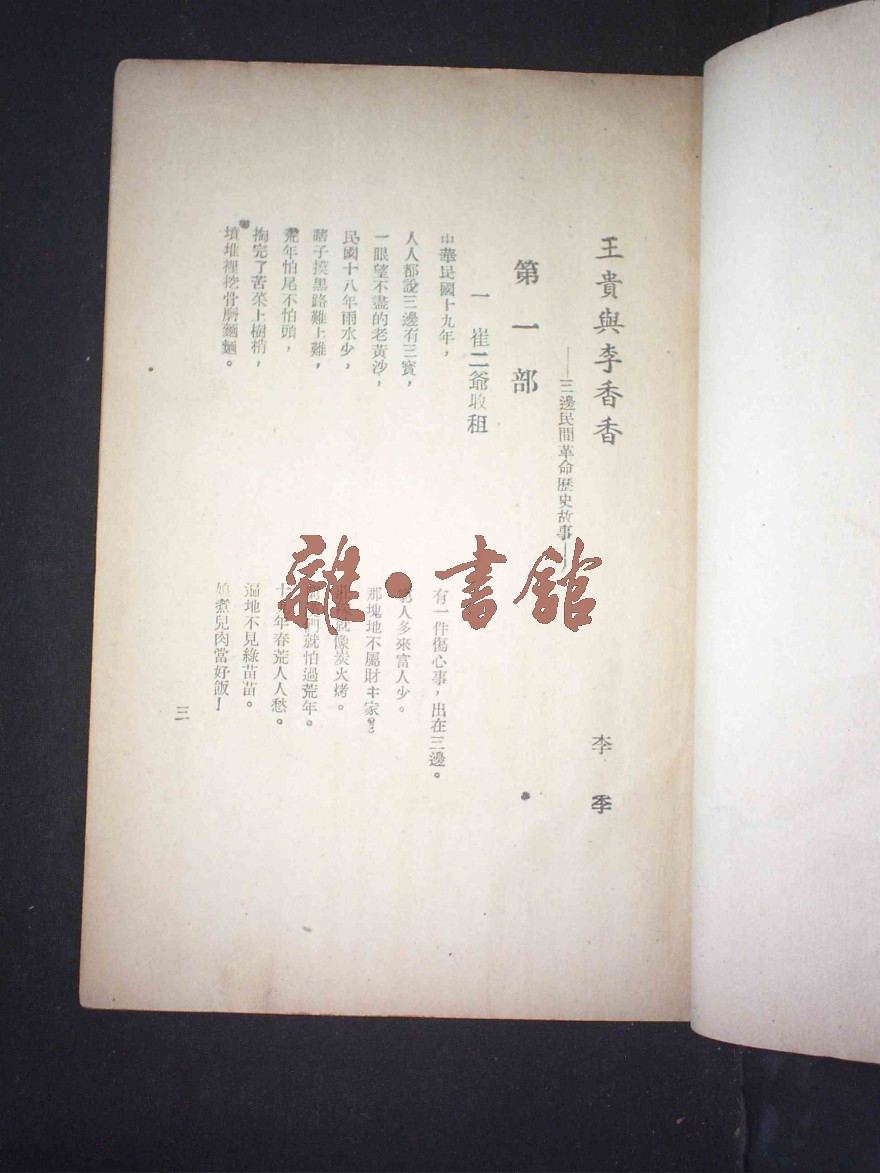 王貴與李香香
——三邊民間革命歷史故事——
李季
第一部
一 崔二爺收租
中華民國十九年，
有一件傷心事，出在三邊。
人人都說三邊有三寶，
人多來富人少。
一眼望不盡的老黃沙，
那塊地不屬財主家？
民國十八年雨水少，
就像炭火烤。
瞎子摸黑路難上難，
們就怕過荒年。
荒年怕尾不怕頭，
十年春荒人人愁。
掏完了苦菜上樹梢，
遍地不見綠苗苗。
墳堆裡挖骨磨麵麵。
煮兒肉當好飯！
三
雜·書館